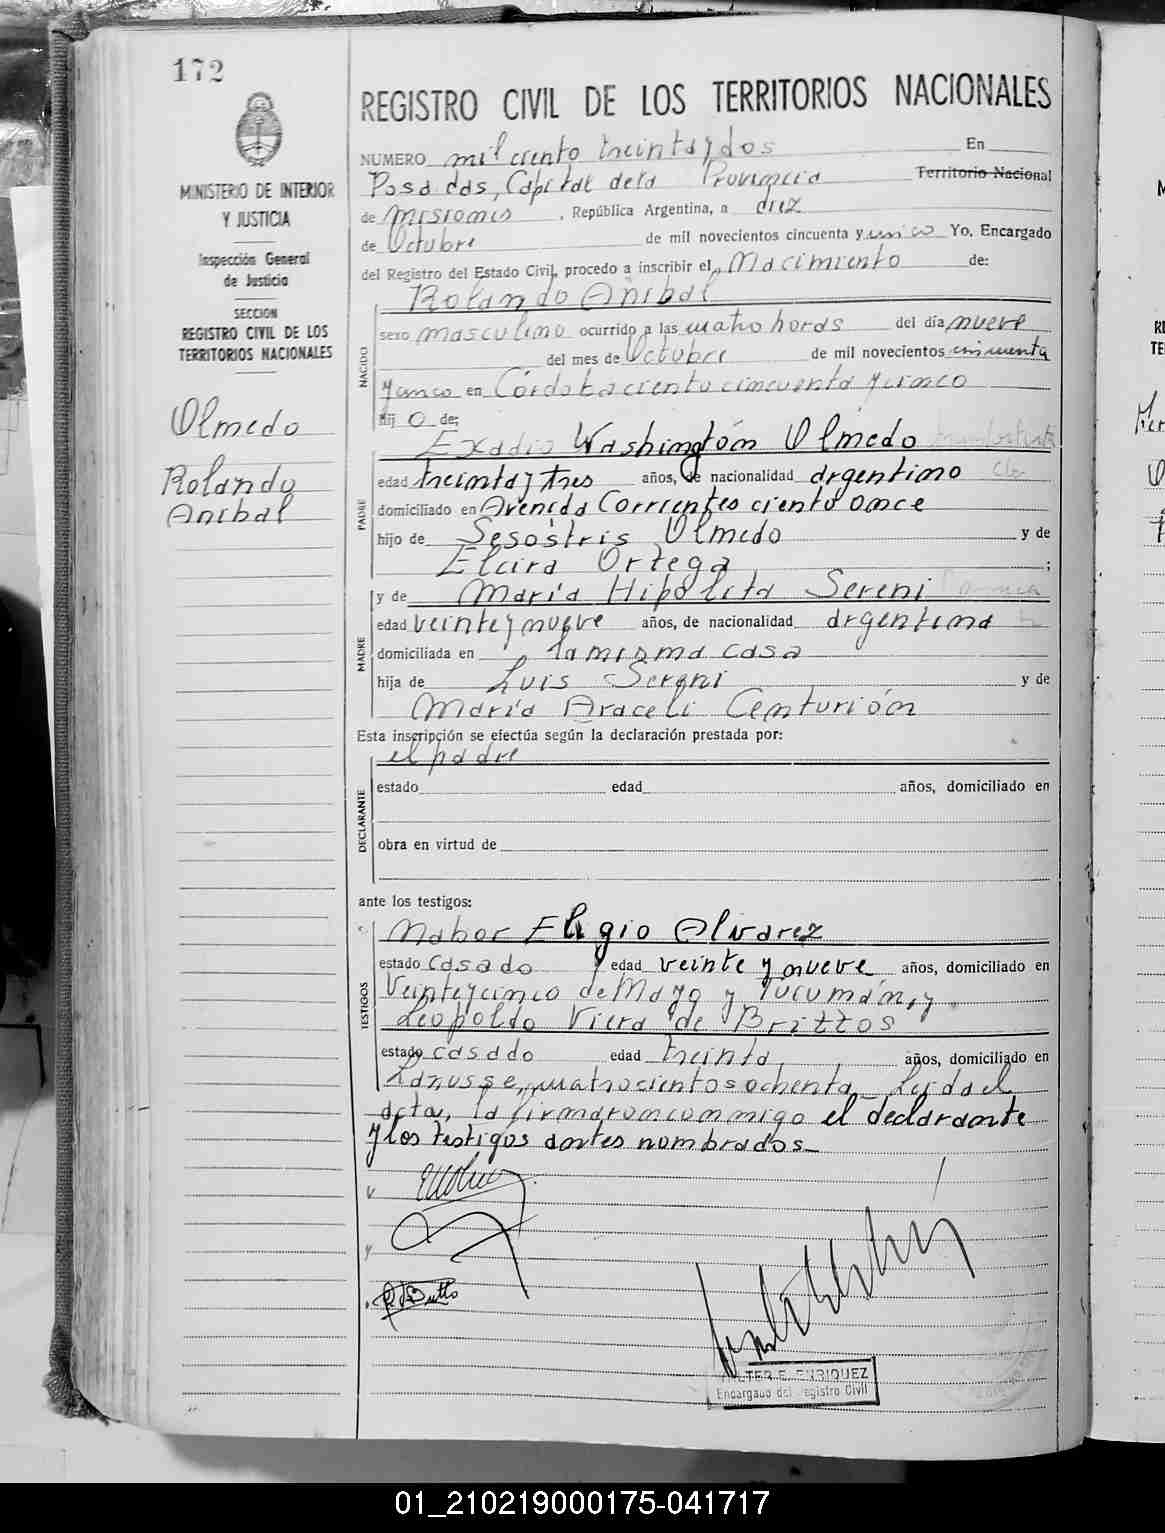 172
REGISTRO CIVIL DE LOS TERRITORIOS NACIONALES
MINISTERIO DE INTERIOR
Y JUSTICIA
Inspección General
de Justicia
SECCION
REGISTRO CIVIL DE LOS
TERRITORIOS NACIONALES
Olmedo
Rolando
Anibal
NUMERO mil ciento treinta y dos En
Posadas, Capital de la Provincia Territorio Nacional
de Misiones, República Argentina, a diez
de Octubre de mil novecientos cincuenta y cinco Yo, Encargado
del Registro del Estado Civil, procedo a inscribir el Nacimiento de:
Rolando Anibal
NACIDO
sexo masculino ocurrido a las cuatro horas del día nueve
del mes de Octubre de mil novecientos cincuenta
y cinco en Córdoba ciento cincuenta y cinco
hij o de:
Exadio Washingtón Olmedo
PADRE
edad treinta y tres años, de nacionalidad argentino
domiciliado en Avenida Corrientes ciento once
hijo de Sesóstris Olmedo y de
Elcira Ortega ;
y de María Hipólita Sereni
MADRE
edad veinte y nueve años, de nacionalidad argentina
domiciliada en la misma casa
hija de Luis Sereni y de
María Araceli Centurión
Esta inscripción se efectúa según la declaración prestada por:
el padre
DECLARANTE
estado edad años, domiciliado en
obra en virtud de
ante los testigos:
Nabor Eligio Alvarez
TESTIGOS
estado casado edad veinte y nueve años, domiciliado en
Veinte y cinco de Mayo y Tucumán, y
Leopoldo Viera de Brittos
estado casado edad treinta años, domiciliado en
Lanusse, cuatrocientos ochenta Leída el
acta, la firmaron conmigo el declarante
y los testigos antes nombrados._
WALTER E. ENRIQUEZ
Encargado del Registro Civil
01_210219000175-041717